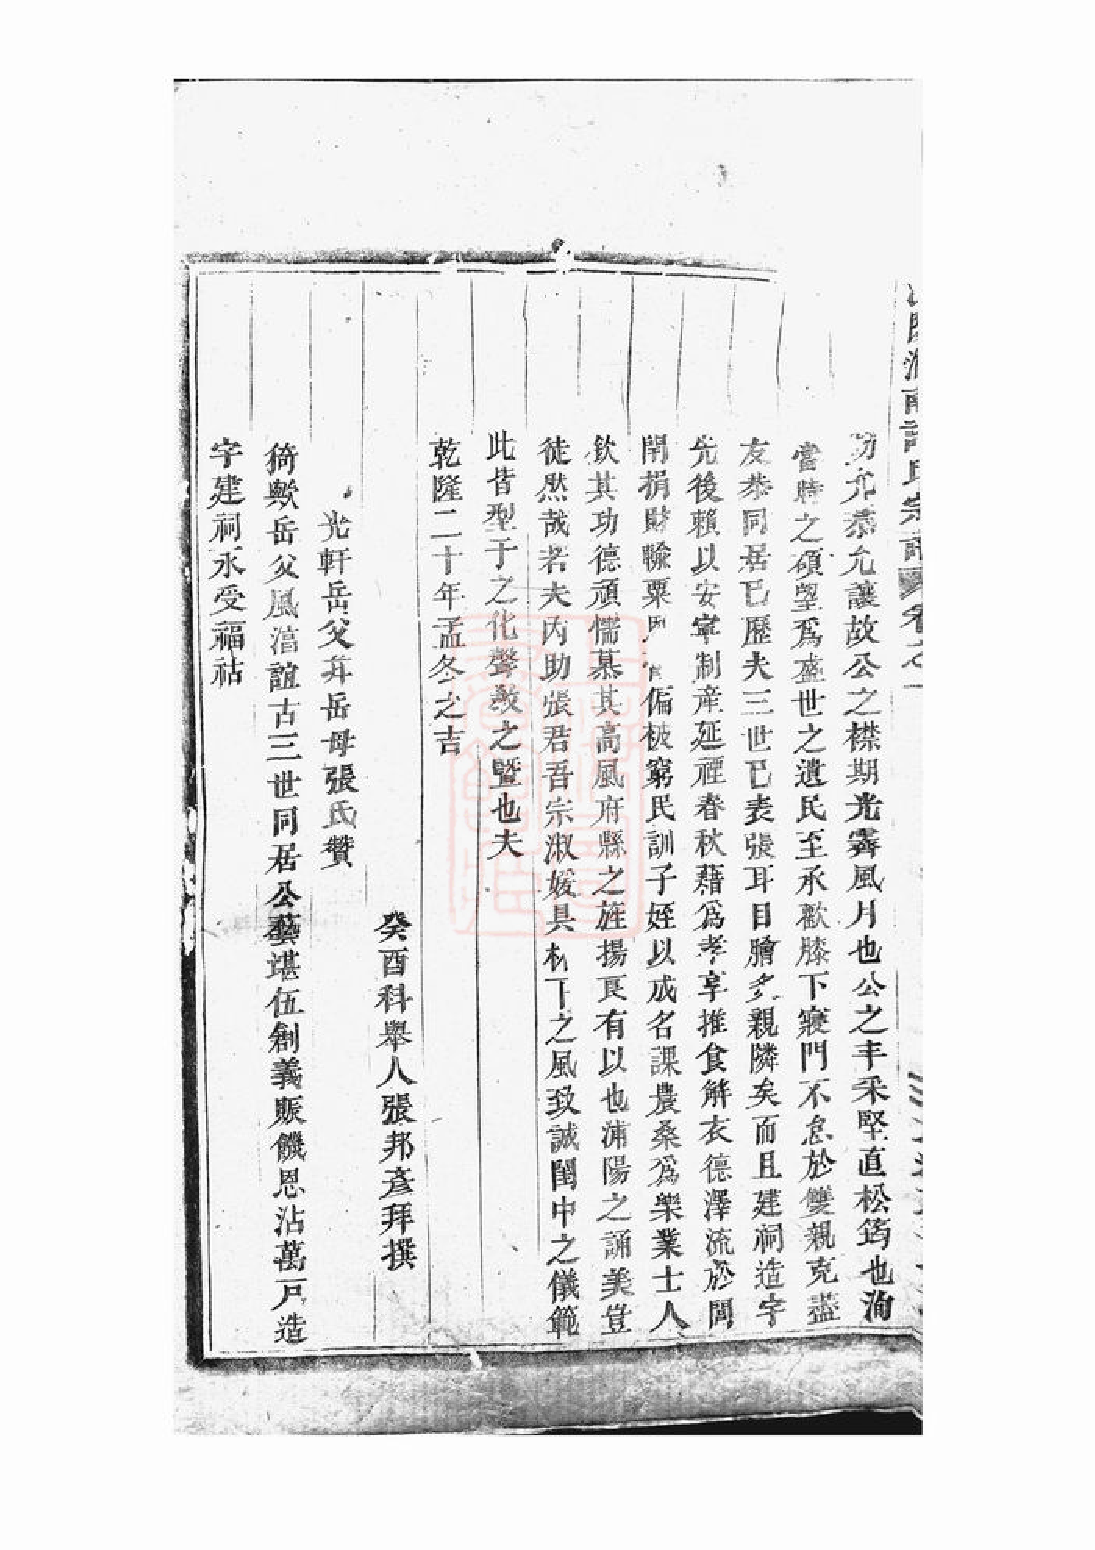 南許氏宗譜 卷之一
允恭允讓故公之襟期光霽風月也公之丰采堅直松筠也洵
當時之碩望爲盛世之遺民至承歡膝下寢門不怠於雙親克盡
友恭同居已歷夫三世已表張耳目膾多親隣矣而且建祠造宇
先後賴以安寧制產延禋春秋藉爲孝享推食解衣德澤流於閭
閈捐財賑粟 偏被窮民訓子姪以成名課農桑爲樂業士人
欽其功德頑懦慕其高風府縣之旌揚良有以也浦陽之誦美豈
徒然哉若夫內助張君吾宗淑媛具林下之風致誠閨中之儀範
此皆型于之化聲敎之暨也夫
乾隆二十年孟冬之吉
癸酉科舉人張邦彥拜撰
光軒岳父弁岳母張氏贊
猗歟岳父風淳誼古三世同居公藝堪伍創義賑饑恩沾萬戶造
宇建祠永受福祜